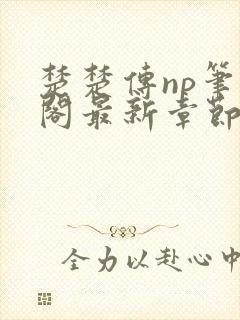 楚楚傳np筆
閣最新章節
全力以赴心中